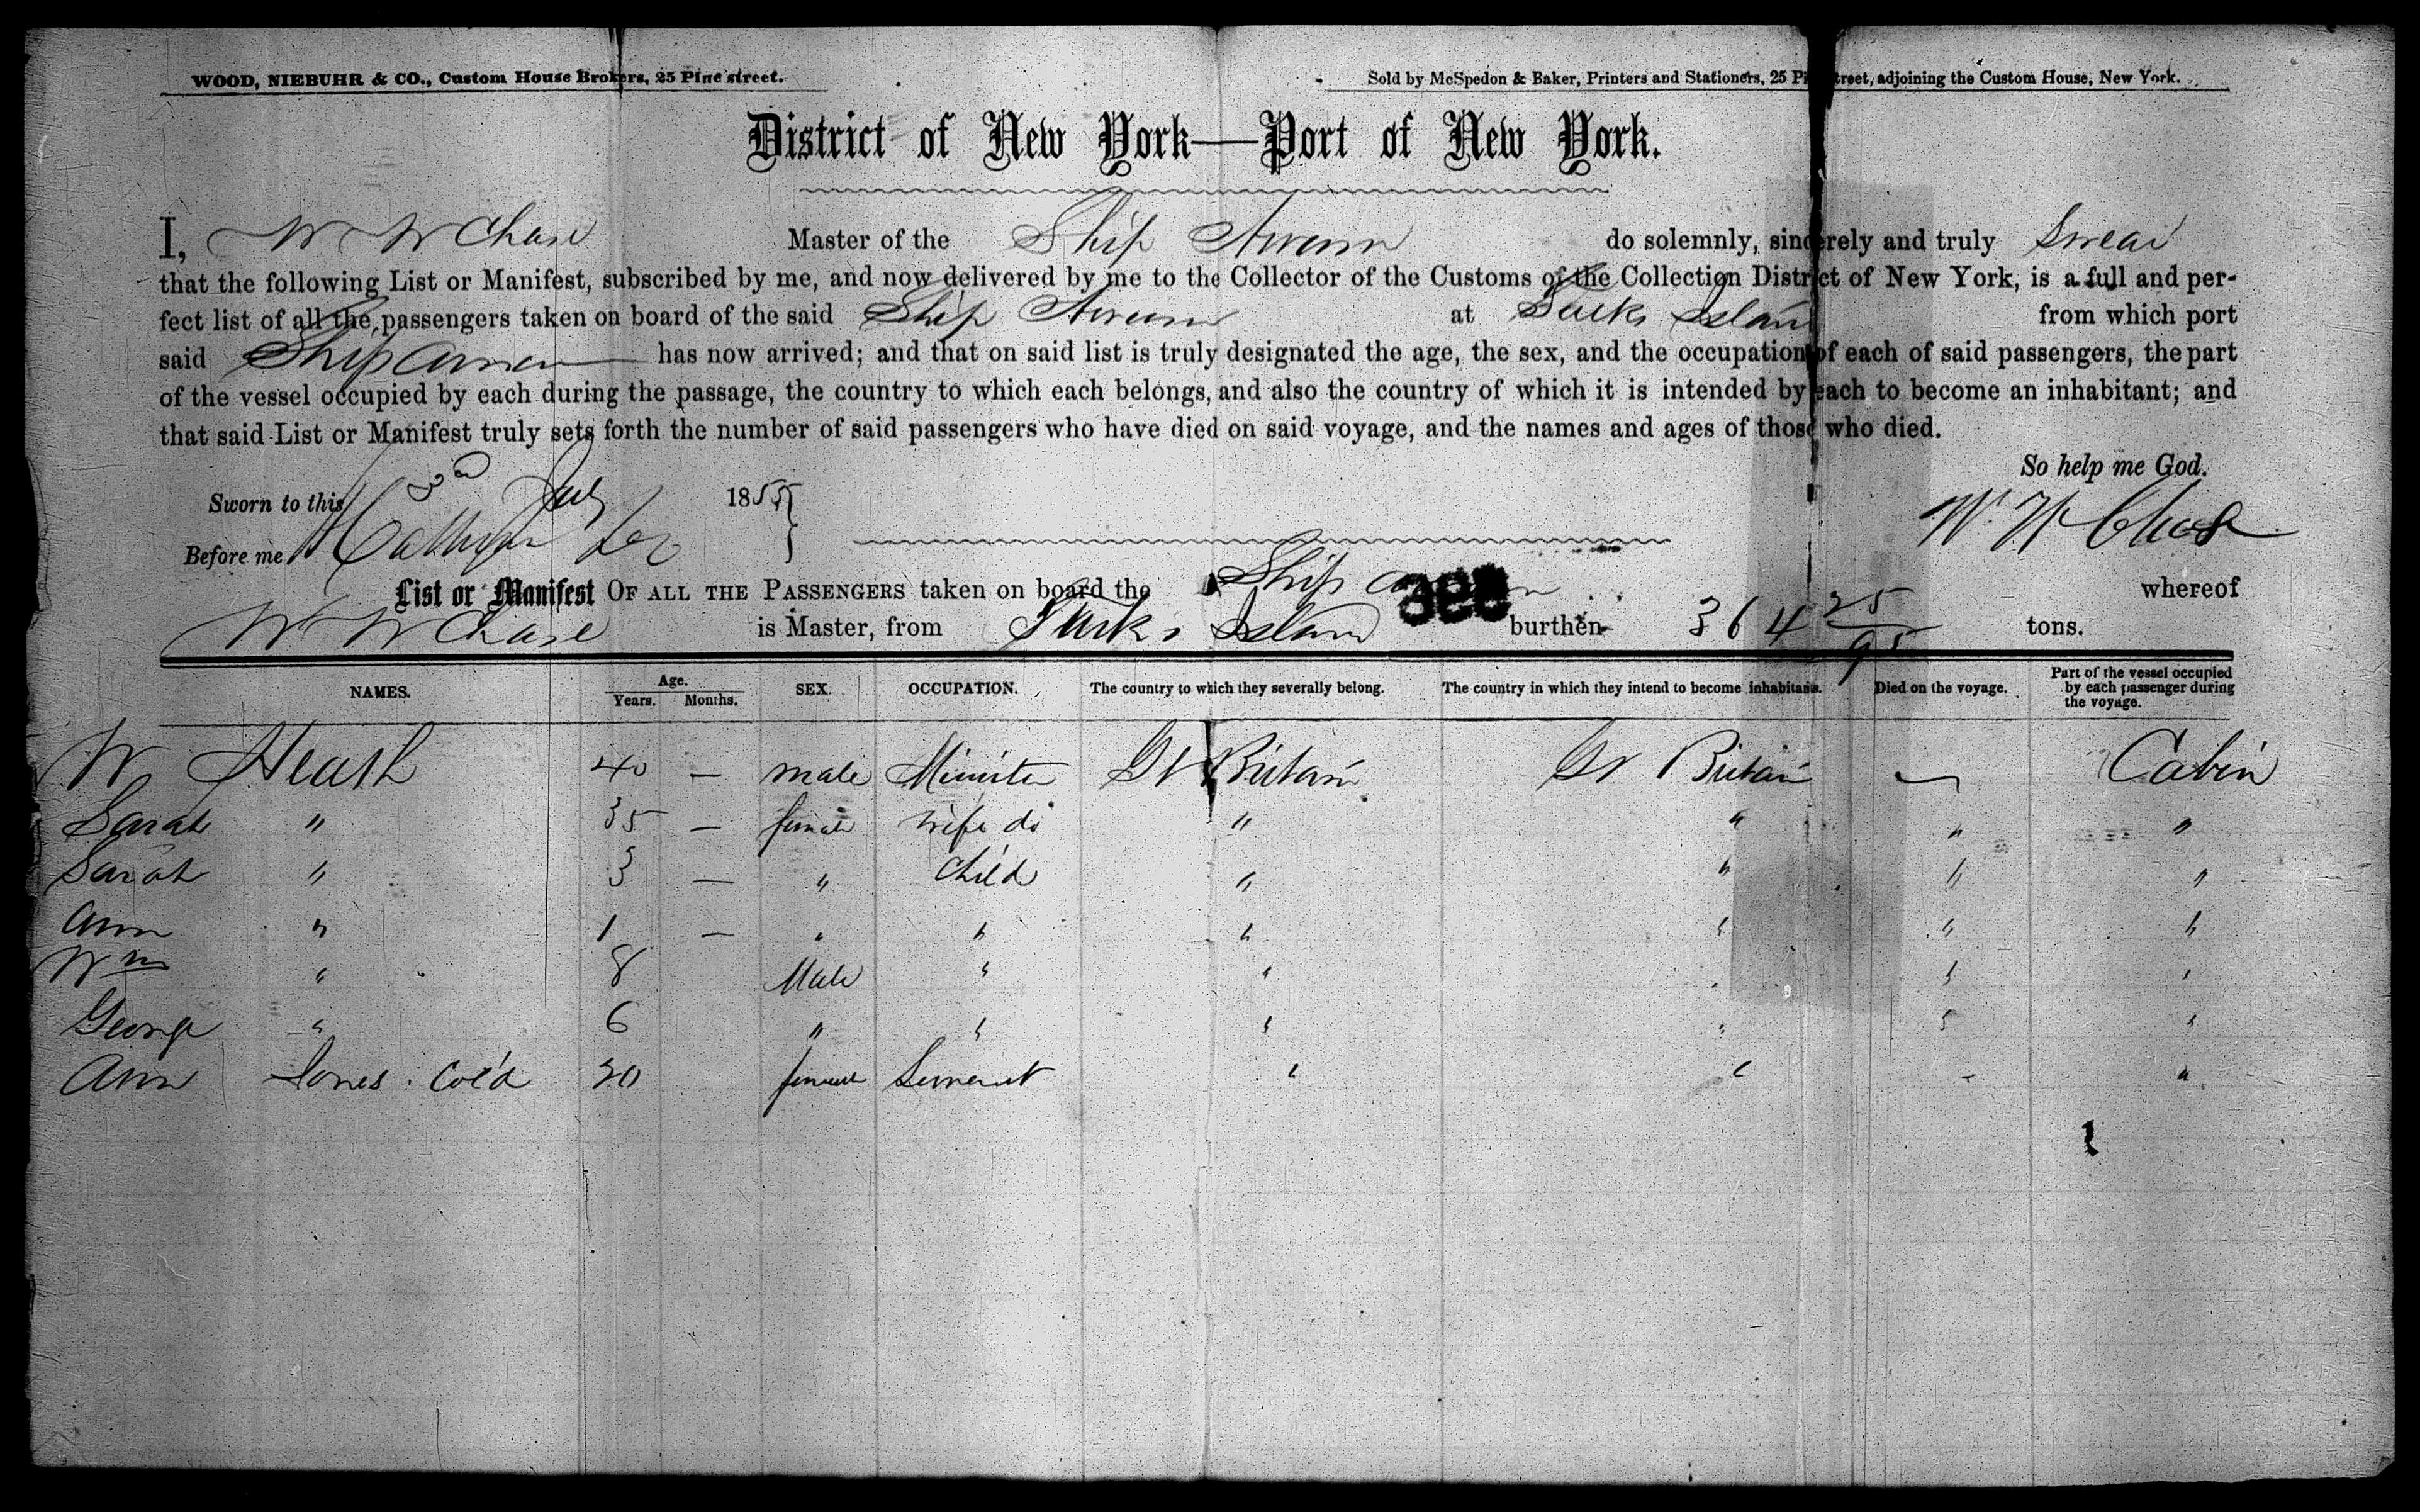 WOOD, NIEBUHR & CO., Custom House Brokers, 25 Pine street.
Sold by McSpedon & Baker, Printers and Stationers, 25 Pi treet, adjoining the Custom House, New York.
District of New York—Port of New York.
I, W W Chase Master of the Ship do solemnly, sincerely and truly Swear
that the following List or Manifest, subscribed by me, and now delivered by me to the Collector of the Customs of the Collection District of New York, is a full and per-
fect list of all the passengers taken on board of the said Ship at Turks Island from which port
said Ship has now arrived; and that on said list is truly designated the age, the sex, and the occupation of each of said passengers, the part
of the vessel occupied by each during the passage, the country to which each belongs, and also the country of which it is intended by each to become an inhabitant; and
that said List or Manifest truly sets forth the number of said passengers who have died on said voyage, and the names and ages of those who died.
So help me God.
Sworn to this 3d July 1855
Before me
W. W Chase
List or Manifest OF ALL THE PASSENGERS taken on board the Ship whereof
W W Chase is Master, from Turks Island burthen 364 25/95 tons.
NAMES. Age. Years. Months. SEX. OCCUPATION. The country to which they severally belong. The country in which they intend to become inhabitants. Died on the voyage. Part of the vessel occupied by each passenger during the voyage.
W Heath 40 — male Minister Gt Britain Gt Britain — Cabin
Sarah " 35 — female wife do " " " "
Sarah " 3 — " Child " " " "
Ann " 1 — " " " " " "
Wm " 8 Male " " " " "
George " 6 " " " " " "
Ann Jones Col'd 20 female Servant " " - "